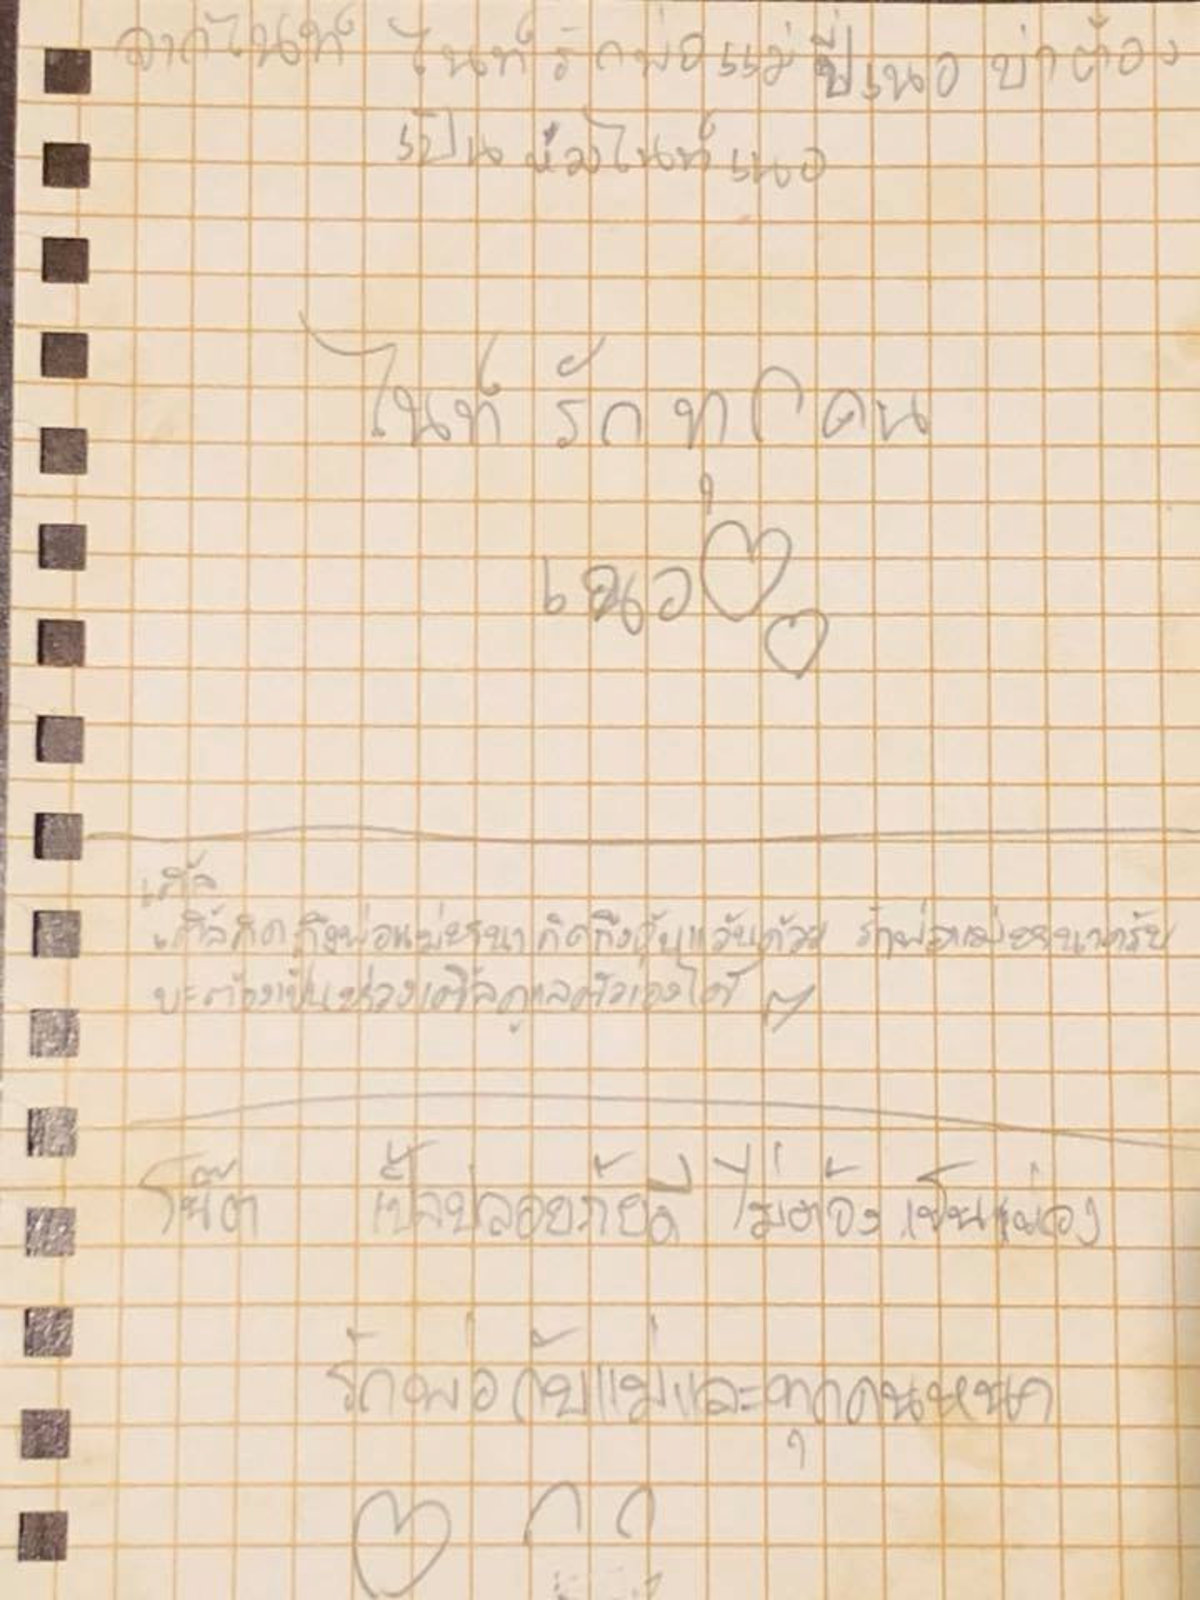 จากไนท์ ไนท์รักพ่อแม่ ปี่เนอ บ่าต้อง
เป็นห่วงไนท์เนอ
ไนท์ รัก ทุกคน
เนอ
คิดถึงพ่อแม่ รักพ่อแม่ ครับ
บะต้องเป็นห่วง ดูแลตัวเองได้
โน๊ต ปลอยภัยดี ไม่ต้องเป็นหว่ง
รักพ่อกับแม่และทุกคนหนา